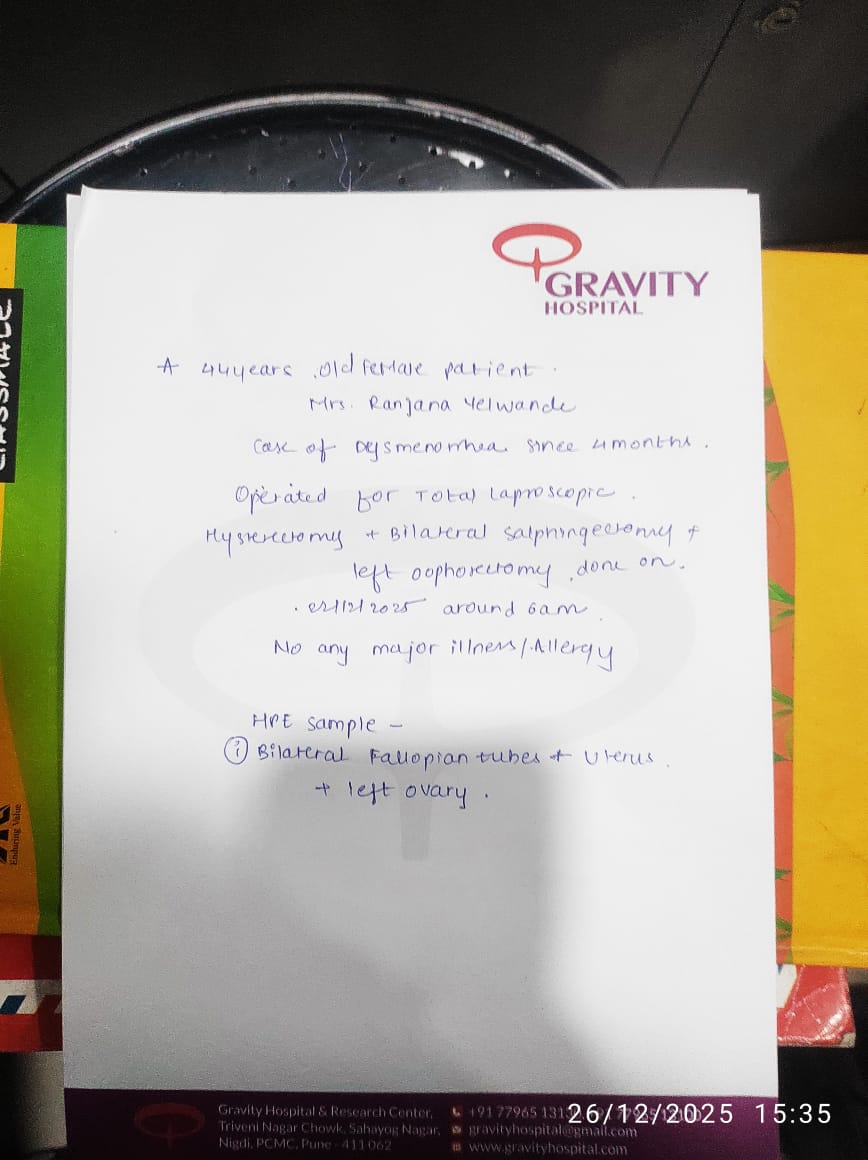 GRAVITY
HOSPITAL
A 44years old female patient.
Mrs. Ranjana Yelwande
Case of Dysmenorrhea since 4months.
Operated for Total Laproscopic.
Hysterectomy + Bilateral Salphingectomy +
left oophorectomy done on.
/12/2025 around 6am
No any major illness/Allergy
HPE sample -
① Bilateral Fallopian tubes + Uterus.
+ left ovary.
CLASSMATE
Enduring Value
Gravity Hospital & Research Center,
Triveni Nagar Chowk, Sahayog Nagar,
Nigdi, PCMC, Pune - 411 062
+91 77965
gravityhospital@gmail.com
www.gravityhospital.com
26/12/2025 15:35